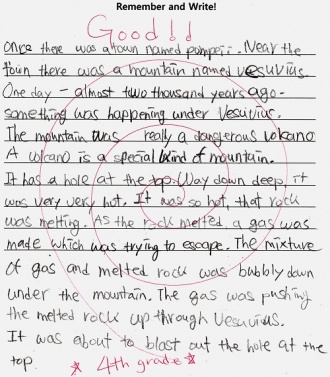 Remember and Write!
Good!!
Once there was a town named pompeii. Near the
town there was a mountain named vesuvius.
One day - almost two thousand years ago-
something was happening under Vesuvius.
The mountain was really a dangerous volcano.
A volcano is a special kind of mountain.
It has a hole at the top. Way down deep, it
was very very hot. It was so hot, that rock
was melting. As the rock melted, a gas was
made which was trying to escape. The mixture
of gas and melted rock was bubbly down
under the mountain. The gas was pushing
the melted rock up through Vesuvius.
It was about to blast out the hole at the
top. ☆ 4th grade ☆